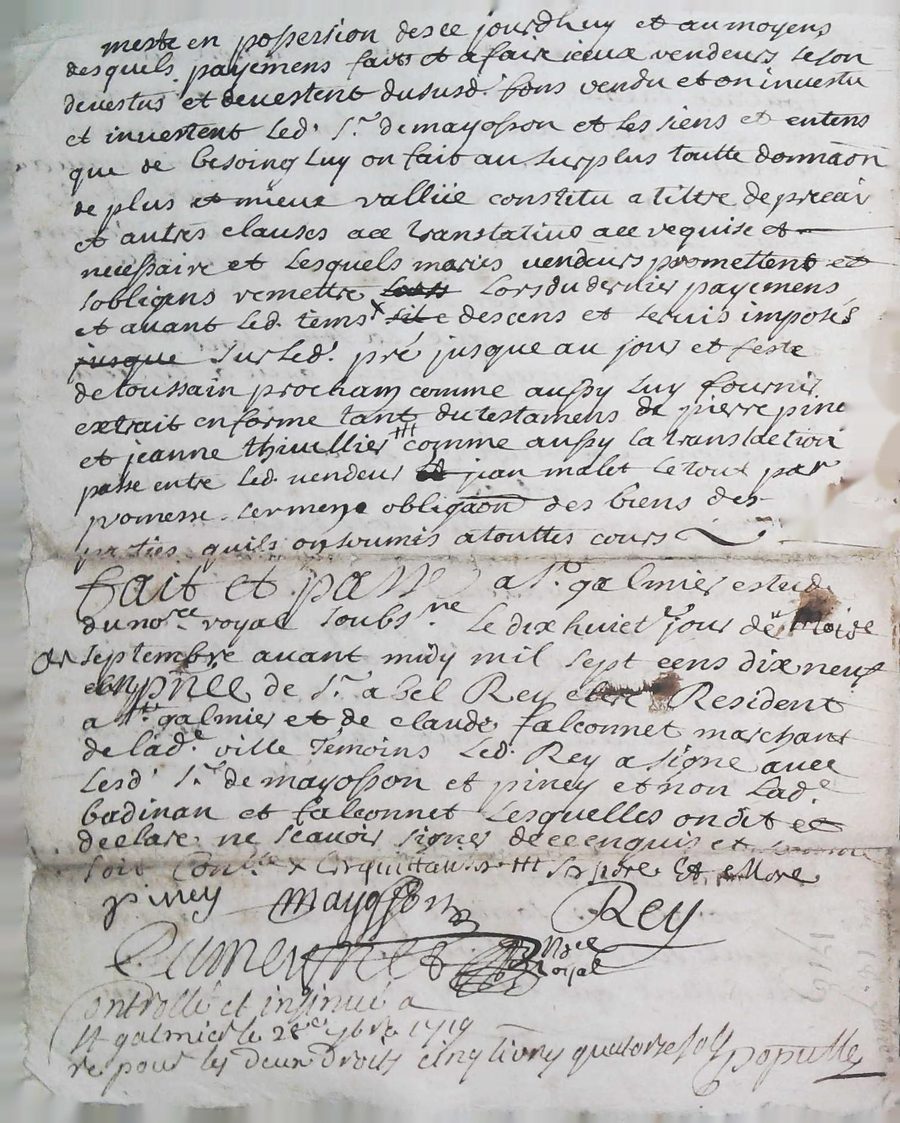 meste en possession desce jourdhuy et aumoyens
desquels payemens faits et a faire iceux vendeurs se son
devestus et devestent dususd. fons vendu et on investu
et investent led. Sr. demayosson et les siens et entens
que de besoing luy on fait au surplus toutte donnaon
de plus et mieux vallüe constitu a tiltre de precair
et autres clauses ace translatives ace requise et
necessaire et lesquels mariés vendeurs promettent et
sobligens remettre lors du dernier payemens
et avant led. tems x descens et servis imposés
jusque sur led. pré jusque au jour et feste
de toussain prochain comme aussy luy fournir
extrait en forme tant du testamens de pierre pine
et jeanne thivellier ttt comme aussy la transaction
passe entre led. vendeur et jean malet le tout par
promesse serment obligaon des biens des
parties quils on soumis a touttes cours
fait et passé a St. galmier estude
du nore. royal soubsne. Le dix huict jour de mois de
septembre avant midy mil sept cens dix neuf
en pnce de Sr. abel Rey clerc Resident
a St. galmier et de claude falconnet marchant
de lade. ville Témoins led. Rey a signé avec
lesd. Sr. de mayosson et piney et non lade.
badinan et falconnet lesquelles on dit et
declare ne scavoir signer de ce enquis et
soit x ttt
piney mayosson Rey
Nore
Royal
ontrollé et insinué a
St galmier le 28e 7bre 1719
re pour les deux droits cinq livres quatorse sols